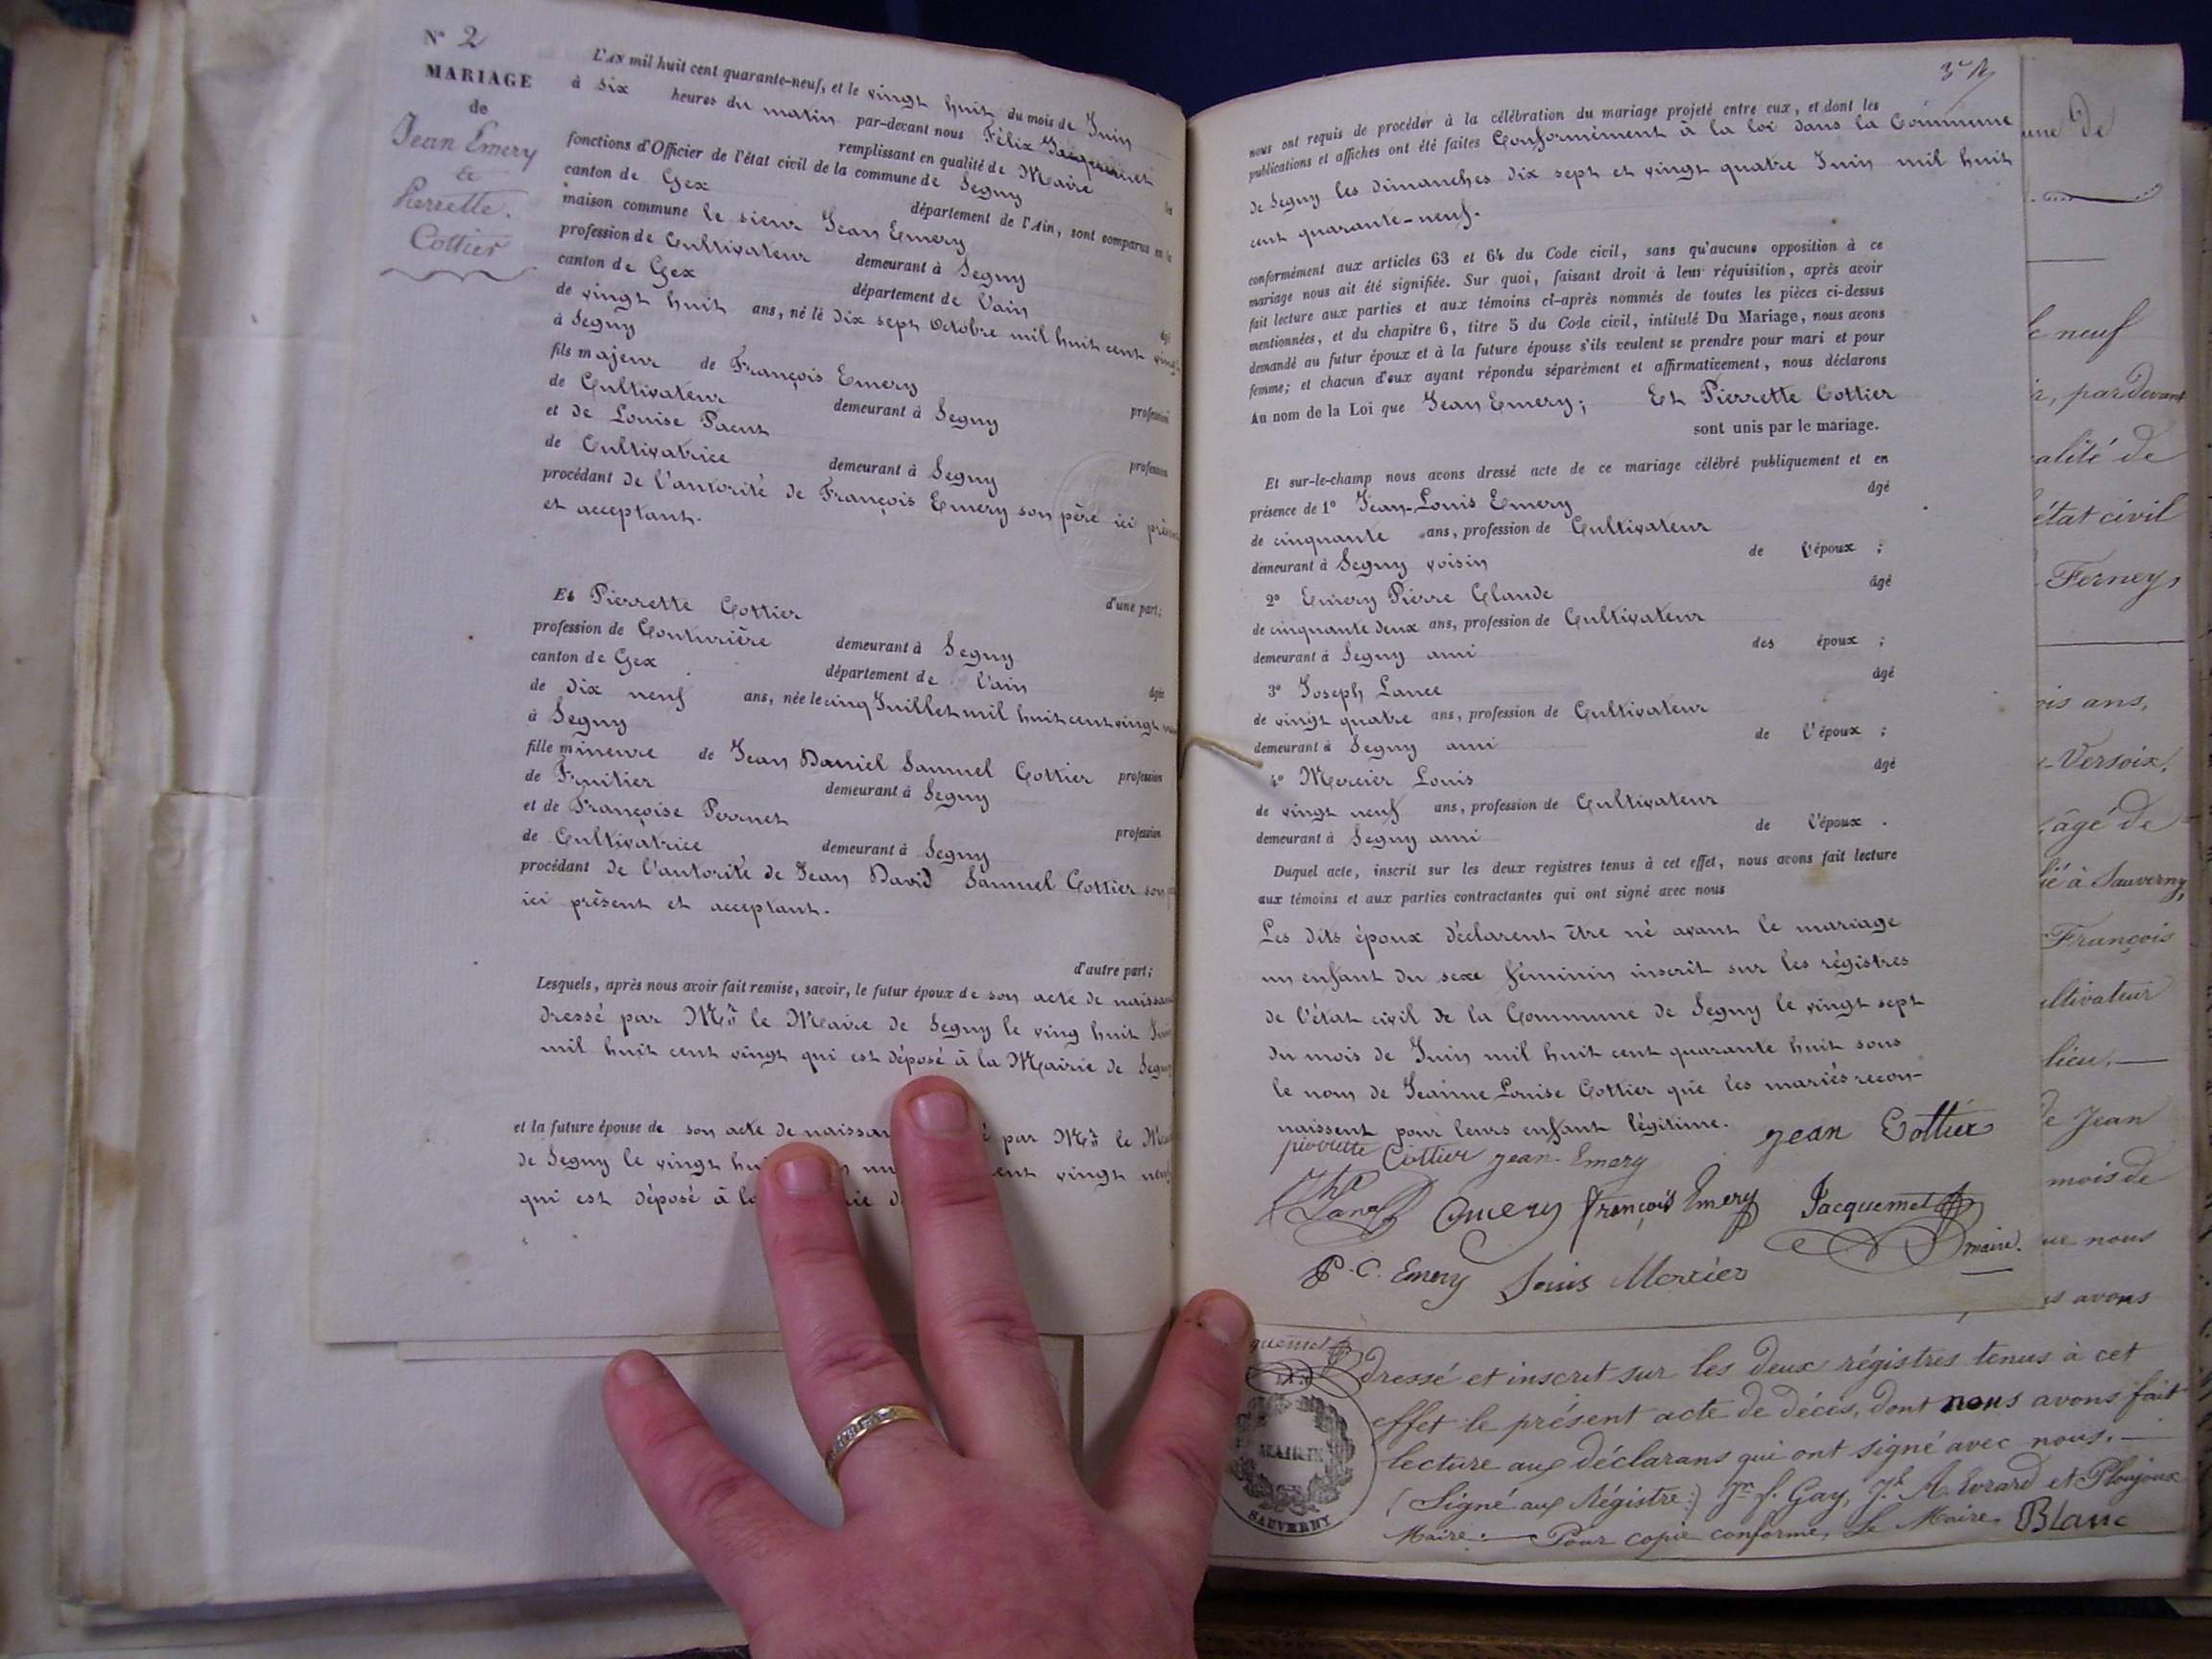 N° 2
MARIAGE
de
Jean Emery
&
Pierrette
Cottier
L'AN mil huit cent quarante-neuf, et le vingt huit du mois de Juin
à six heures du matin par-devant nous Félix Jacquemet
remplissant en qualité de Maire les
fonctions d'Officier de l'état civil de la commune de Segny
canton de Gex département de l'Ain, sont comparus en la
maison commune le sieur Jean Emery
profession de Cultivateur demeurant à Segny
canton de Gex département de l'ain âgé
de vingt huit ans, né le dix sept Octobre mil huit cent vingt
à Segny
fils majeur de François Emery profession
de Cultivateur demeurant à Segny
et de Louise Paent profession
de Cultivatrice demeurant à Segny
procédant de l'autorité de François Emery son père ici présent
et acceptant.
d'une part;
Et Pierrette Cottier
profession de Couturière demeurant à Segny
canton de Gex département de l'ain âgée
de dix neuf ans, née le cinq Juillet mil huit cent vingt
à Segny
fille mineure de Jean Daniel Samuel Cottier profession
de Fruitier demeurant à Segny
et de Françoise Perrnet profession
de Cultivatrice demeurant à Segny
procédant de l'autorité de Jean David Samuel Cottier son
ici présent et acceptant.
d'autre part;
Lesquels, après nous avoir fait remise, savoir, le futur époux de son acte de naissan
dressé par Mr le Maire de Segny le ving huit
mil huit cent vingt qui est déposé à la Mairie de Segny
et la future épouse de son acte de naissan par Mr le
de Segny le vingt hu ent vingt neuf
qui est déposé à la ie d
3e
nous ont requis de procéder à la célébration du mariage projeté entre eux, et dont les
publications et affiches ont été faites Conformément à la loi dans la Commune
de Segny les dimanches dix sept et vingt quatre Juin mil huit
cent quarante-neuf.
conformément aux articles 63 et 64 du Code civil, sans qu'aucune opposition à ce
mariage nous ait été signifiée. Sur quoi, faisant droit à leur réquisition, après avoir
fait lecture aux parties et aux témoins ci-après nommés de toutes les pièces ci-dessus
mentionnées, et du chapitre 6, titre 5 du Code civil, intitulé Du Mariage, nous avons
demandé au futur époux et à la future épouse s'ils veulent se prendre pour mari et pour
femme; et chacun d'eux ayant répondu séparément et affirmativement, nous déclarons
Au nom de la Loi que Jean Emery; Et Pierrette Cottier
sont unis par le mariage.
Et sur-le-champ nous avons dressé acte de ce mariage célébré publiquement et en
présence de 1° Jean-Louis Emery âgé
de cinquante ans, profession de Cultivateur
demeurant à Segny voisin de l'époux ;
2° Emery Pierre Claude âgé
de cinquante deux ans, profession de Cultivateur
demeurant à Segny ami des époux ;
3° Joseph Lance âgé
de vingt quatre ans, profession de Cultivateur
demeurant à Segny ami de l'époux ;
4° Mercier Louis âgé
de vingt neuf ans, profession de Cultivateur
demeurant à Segny ami de l'époux .
Duquel acte, inscrit sur les deux registres tenus à cet effet, nous avons fait lecture
aux témoins et aux parties contractantes qui ont signé avec nous
Les dits époux déclarent être né avant le mariage
un enfant du sexe féminin inscrit sur les régistres
de l'état civil de la Commune de Segny le vingt sept
du mois de Juin mil huit cent quarante huit sous
le nom de Jeanne Louise Cottier que les mariés recon-
naissent pour leurs enfant légitime. Jean Cottier
pierrette Cottier jean Emery
Emery françois Emery Jacquemet
maire.
P. C. Emery Louis Mercier
une de
le neuf
, par devant
alité de
état civil
Ferney,
ois ans,
Versoix,
, âgé de
ié à Sauverny,
François
ltivateur
lieu,
de Jean
mois de
ue nous
s avons
quemet
MAIRIE
SAUVERNY
dressé et inscrit sur les deux régistres tenus à cet
effet le présent acte de décès, dont nous avons fait
lecture aux déclarans qui ont signé avec nous.
(Signé aux Régistre:) Jn f. Gay, Jh A. Evrard et Ploujoux
Maire. Pour copie conforme, Le Maire, Blanc